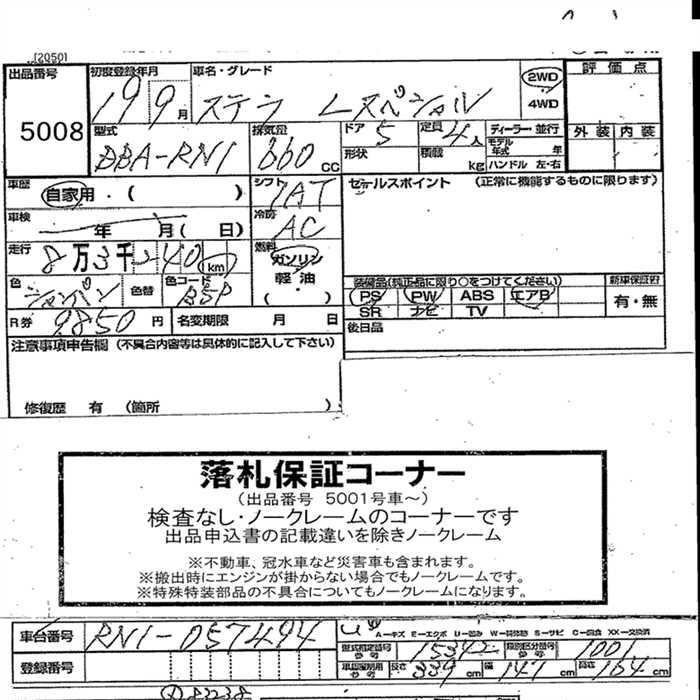 [2050]
出品番号 5008
初度登録年月 19 9月
車名・グレード ステラ Lスペシャル
2WD
4WD
評価点
外装 内装
型式 DBA-RN1
排気量 660cc
ドア 5
定員 4人
ディーラー・並行
モデル年式 年
形状
積載 kg
ハンドル 左・右
車歴 自家用・( )
シフト 7AT
セールスポイント (正常に機能するものに限ります)
車検 年 月( 日)
冷房 AC
走行 8万3千240km
燃料 ガソリン
軽油
( )
色 シャンパン
色替
色コード BSP
装備品(純正品に限り○をつけてください)
新車保証書
PS PW ABS エアB
SR ナビ TV
有・無
R券 9850円
名変期限 月 日
後日品
注意事項申告欄 (不具合内容等は具体的に記入して下さい)
修復歴 有 (箇所 )
落札保証コーナー
(出品番号 5001号車~)
検査なし・ノークレームのコーナーです
出品申込書の記載違いを除きノークレーム
※不動車、冠水車など災害車も含まれます。
※搬出時にエンジンが掛からない場合でもノークレームです。
※特殊特装部品の不具合についてもノークレームになります。
車台番号 RN1-057494
A-キズ E-エクボ U-凹み S-サビ C-腐食 XX-交換済
型式指定番号 参考 15342
類別区分番号 参考 1001
登録番号
車庫証明用 参考 長さ 339cm 幅 147cm 高さ 164cm